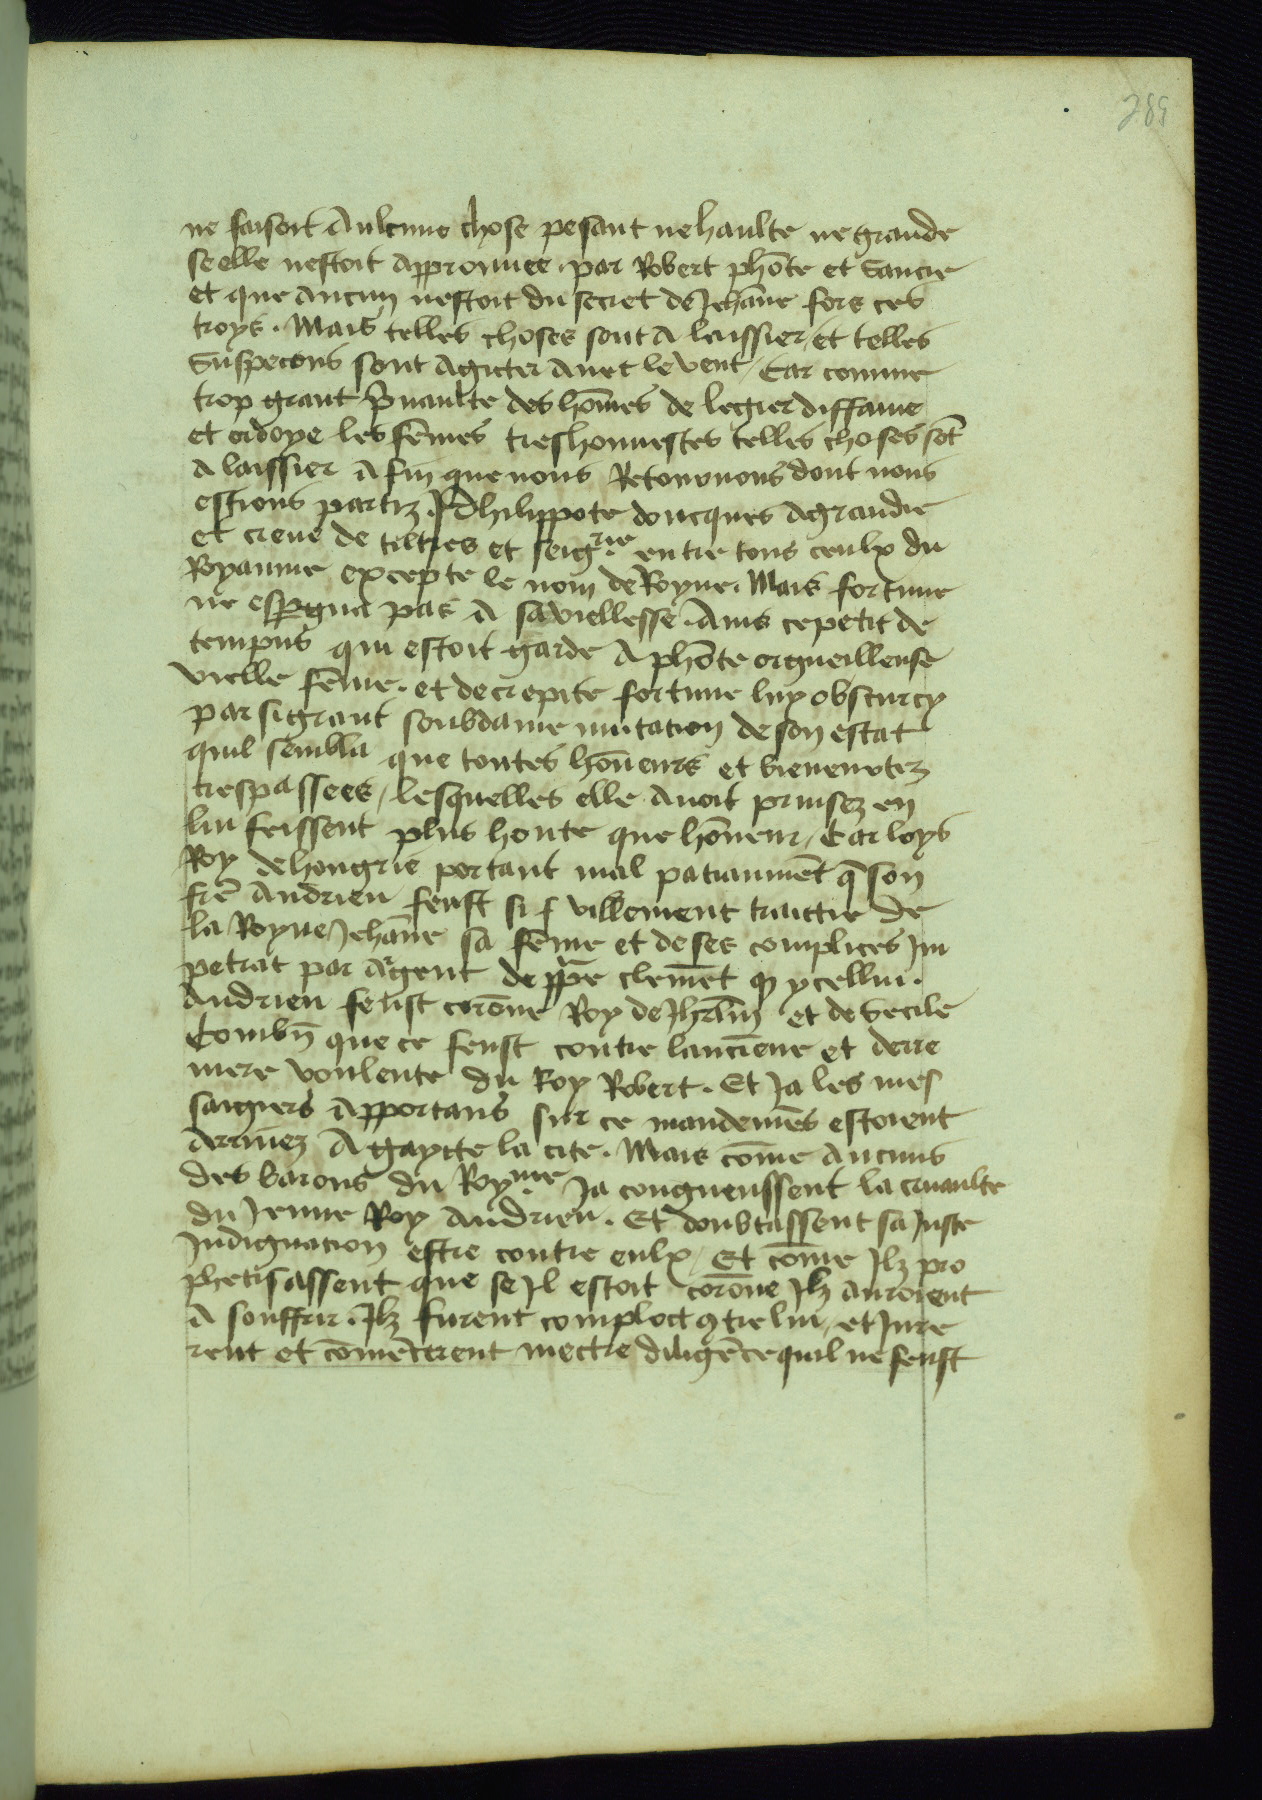 289
ne faisoit Aulcune chose pesant ne haulte ne grande
se elle nestoit approuuee par Robert phōte et Sancie
et que aucun nestoit du secret de Jehāne fors ces
troys. Mais telles choses sont a laissier et telles
Suspecons sont Agicter auec le vent / Car comme
trop grant p̄uaulte des hōmes de legier diffame
et ordoye les fēmes treshonnestes telles choses sōt
a laissier A fin que nous Retournons dont nous
estions partiz. Philippote doncques Agrandie
et creue de tiltres et seigrie entre tous ceulx du
Royaume excepte le nom de Royne. Mais fortune
ne esp̄gna pas A sa viellesse. Ains ce petit de
tempns qui estoit garde A phōte orgueilleuse
vielle fēme. et decrepite fortune luy obscurcy
par si grant soubdaine mutacion de son estat
quil sembla que toutes hōneurs et bieneuretez
trespassees / lesquelles elle Auoit prinsez en
lui feissent plus honte que hōneur / Car loys
Roy de hongrie portant mal paciaumēt q̄ son
frē Andrieu feust si villement traictie de
la Royne Jehāne sa fēme et de ses complices Im
petrat par Argent de ppē clemēt q̄ ycellui.
Andrieu feust corōne Roy de Jhrl̄m et de Secile
Combn̄ que ce feust contre lanciēne et derre
niere voulente du Roy Robert. Et Ja les mes
saigiers Apportans sur ce mandemēs estoient
arriuez A gaytte la cite. Mais cōme Aucuns
des barons du Royme Ja congneussent la cruaulte
du Jenne Roy Andrieu. Et doubtassent sa Juste
Indignacion estre contre eulx / Et cōme Ilz pro
phetisassent que se Il estoit corōne Ilz auroient
A souffrir. Ilz furent comploct 9tre lui / et Jure
rent et cōmēcerent mectre diligēce quil ne feust